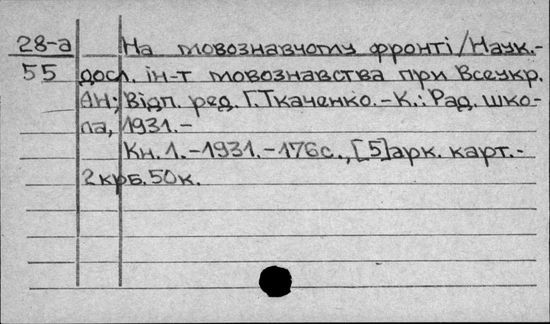 28-а На мовознавчому фронті/Наук.-
55 досл. ін-т мовознавства при Всеукр.
АН; Відп. ред. Г.Ткаченко.-К.: Рад. шко-
ла, 1931.-
Кн. 1.-1931.-176с., [5]арк. карт.-
2крб.50к.